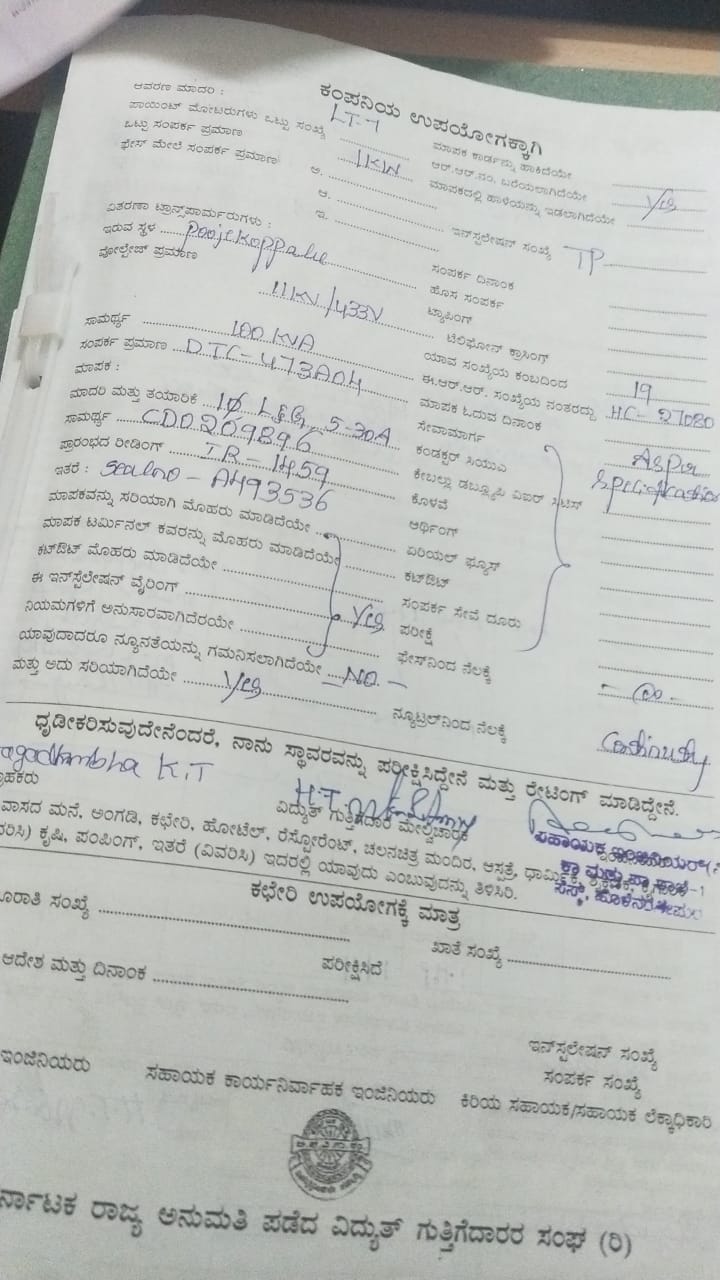 ಕಂಪನಿಯ ಉಪಯೋಗಕ್ಕಾಗಿ
ಆವರಣ ಮಾದರಿ :
LT-1
ಪಾಯಿಂಟ್ ಮೋಟರುಗಳು ಒಟ್ಟು ಸಂಖ್ಯೆ
ಮಾಪಕ ಕಾರ್ಡನ್ನು ಹಾಕಿದೆಯೇ
ಒಟ್ಟು ಸಂಪರ್ಕ ಪ್ರಮಾಣ 1KW
ಆರ್.ಆರ್.ನಂ. ಬರೆಯಲಾಗಿದೆಯೇ Yes
ಫೇಸ್ ಮೇಲೆ ಸಂಪರ್ಕ ಪ್ರಮಾಣ ಅ.
ಮಾಪಕದಲ್ಲಿ ಹಾಳೆಯನ್ನು ಇಡಲಾಗಿದೆಯೇ
ಆ.
ಇ.
ಇನ್‌ಸ್ಟಲೇಷನ್ ಸಂಖ್ಯೆ TP
ವಿತರಣಾ ಟ್ರಾನ್ಸ್‌ಫಾರ್ಮರುಗಳು :
ಸಂಪರ್ಕ ದಿನಾಂಕ
ಇರುವ ಸ್ಥಳ
ಹೊಸ ಸಂಪರ್ಕ
ವೋಲ್ಟೇಜ್ ಪ್ರಮಾಣ 11KV/433V
ಟ್ಯಾಪಿಂಗ್
ಟೆಲಿಫೋನ್ ಕ್ರಾಸಿಂಗ್
ಸಾಮರ್ಥ್ಯ 100 KVA
ಯಾವ ಸಂಖ್ಯೆಯ ಕಂಬದಿಂದ 19
ಸಂಪರ್ಕ ಪ್ರಮಾಣ DTC-473A04
ಈ.ಆರ್.ಆರ್. ಸಂಖ್ಯೆಯ ನಂತರದ್ದು HC-27080
ಮಾಪಕ :
ಮಾಪಕ ಓದುವ ದಿನಾಂಕ
ಮಾದರಿ ಮತ್ತು ತಯಾರಿಕೆ 1Ø L&G 5-30A
ಸೇವಾಮಾರ್ಗ As per
ಸಾಮರ್ಥ್ಯ CD0209896
ಕಂಡಕ್ಟರ್ ಸಿಯುವಿ Specification
ಪ್ರಾರಂಭದ ರೀಡಿಂಗ್ IR-1459
ಕೇಬಲ್ಲು ಡಬ್ಲ್ಯೂಪಿ ವಿಐರ್ ಸಿಟಿಸ್
ಇತರೆ : Sealno - A493536
ಕೊಳವೆ
ಮಾಪಕವನ್ನು ಸರಿಯಾಗಿ ಮೊಹರು ಮಾಡಿದೆಯೇ
ಆರ್ಥಿಂಗ್
ಮಾಪಕ ಟರ್ಮಿನಲ್ ಕವರನ್ನು ಮೊಹರು ಮಾಡಿದೆಯೇ
ಏರಿಯಲ್ ಫ್ಯೂಸ್
ಕಟ್‌ಔಟ್ ಮೊಹರು ಮಾಡಿದೆಯೇ
ಕಟ್‌ಔಟ್
ಈ ಇನ್‌ಸ್ಟೆಲೇಷನ್ ವೈರಿಂಗ್ Yes
ಸಂಪರ್ಕ ಸೇವೆ ದೂರು
ನಿಯಮಗಳಿಗೆ ಅನುಸಾರವಾಗಿದೆರೆಯೇ
ಪರೀಕ್ಷೆ
ಯಾವುದಾದರೂ ನ್ಯೂನತೆಯನ್ನು ಗಮನಿಸಲಾಗಿದೆಯೇ - NO -
ಫೇಸ್‌ನಿಂದ ನೆಲಕ್ಕೆ
ಮತ್ತು ಅದು ಸರಿಯಾಗಿದೆಯೇ Yes
ನ್ಯೂಟ್ರಲ್‌ನಿಂದ ನೆಲಕ್ಕೆ Continuity
ಧೃಡೀಕರಿಸುವುದೇನೆಂದರೆ, ನಾನು ಸ್ಥಾವರವನ್ನು ಪರೀಕ್ಷಿಸಿದ್ದೇನೆ ಮತ್ತು ರೇಟಿಂಗ್ ಮಾಡಿದ್ದೇನೆ.
agadhambha K.T
ಗ್ರಾಹಕರು
ವಿದ್ಯುತ್ ಗುತ್ತಿಗೆದಾರ ಮೇಲ್ವಿಚಾರಕ
ಸಹಾಯಕ ಇಂಜಿನಿಯರ್
ವಾಸದ ಮನೆ, ಅಂಗಡಿ, ಕಛೇರಿ, ಹೋಟೆಲ್, ರೆಸ್ಟೋರೆಂಟ್, ಚಲನಚಿತ್ರ ಮಂದಿರ, ಆಸ್ಪತ್ರೆ, ಧಾರ್ಮಿಕ
ವರಿಸಿ) ಕೃಷಿ, ಪಂಪಿಂಗ್, ಇತರೆ (ವಿವರಿಸಿ) ಇದರಲ್ಲಿ ಯಾವುದು ಎಂಬುವುದನ್ನು ತಿಳಿಸಿರಿ.
ಕಛೇರಿ ಉಪಯೋಗಕ್ಕೆ ಮಾತ್ರ
ೂರಾತಿ ಸಂಖ್ಯೆ
ಖಾತೆ ಸಂಖ್ಯೆ
ಆದೇಶ ಮತ್ತು ದಿನಾಂಕ
ಪರೀಕ್ಷಿಸಿದೆ
ಇನ್‌ಸ್ಟಲೇಷನ್ ಸಂಖ್ಯೆ
ಸಂಪರ್ಕ ಸಂಖ್ಯೆ
ಇಂಜಿನಿಯರು
ಸಹಾಯಕ ಕಾರ್ಯನಿರ್ವಾಹಕ ಇಂಜಿನಿಯರು
ಕಿರಿಯ ಸಹಾಯಕ/ಸಹಾಯಕ ಲೆಕ್ಕಾಧಿಕಾರಿ
ರ್ನಾಟಕ ರಾಜ್ಯ ಅನುಮತಿ ಪಡೆದ ವಿದ್ಯುತ್ ಗುತ್ತಿಗೆದಾರರ ಸಂಘ (ರಿ)